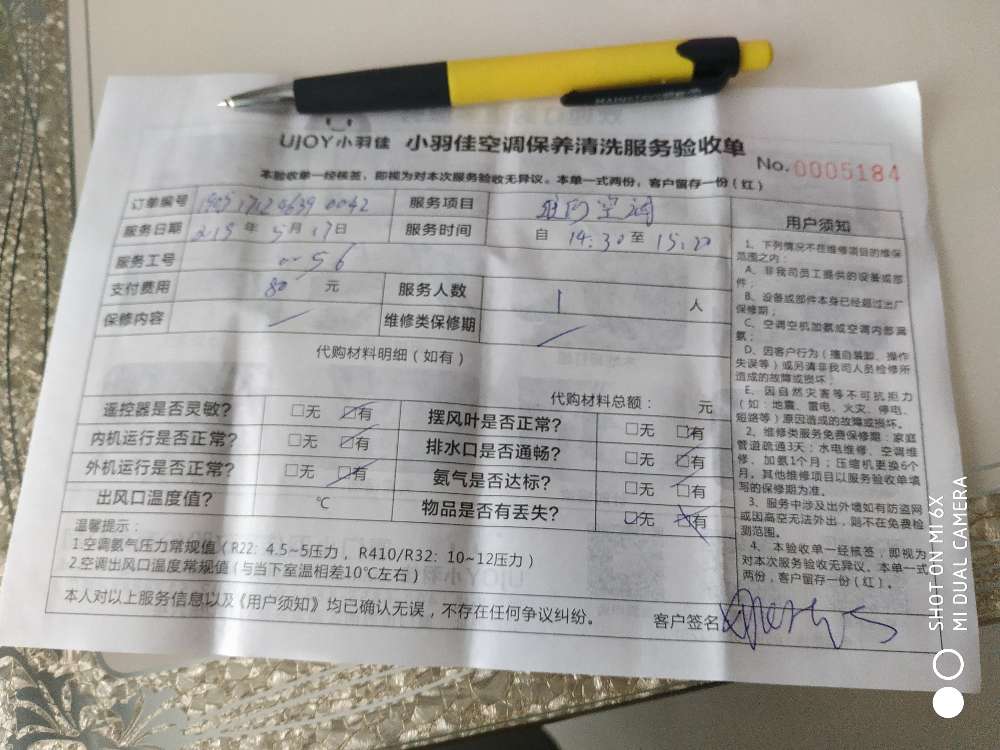 UJOY小羽佳 小羽佳空调保养清洗服务验收单
No.0005184
本验收单一经核签，即视为对本次服务验收无异议。本单一式两份，客户留存一份（红）
订单编号 服务项目
服务日期 2019年5月17日 服务时间 自 14:30 至 15:20
服务工号 0056
支付费用 80 元 服务人数 1 人
保修内容 维修类保修期
代购材料明细（如有）
代购材料总额： 元
遥控器是否灵敏？ □无 □有 摆风叶是否正常？ □无 □有
内机运行是否正常？ □无 □有 排水口是否通畅？ □无 □有
外机运行是否正常？ □无 □有 氨气是否达标？ □无 □有
出风口温度值？ ℃ 物品是否有丢失？ □无 □有
温馨提示：
1.空调氨气压力常规值（R22：4.5~5压力，R410/R32：10~12压力）
2.空调出风口温度常规值（与当下室温相差10℃左右）
本人对以上服务信息以及《用户须知》均已确认无误，不存在任何争议纠纷。
客户签名
用户须知
1、下列情况不在维修项目的维保
范围之内：
A、非我司员工提供的设备或部
件；
B、设备或部件本身已经超过出厂
保修期；
C、空调空机加氨或空调内部漏
氨；
D、因客户行为（擅自装卸、操作
失误等）或另请非我司人员检修所
造成的故障或损坏；
E、因自然灾害等不可抗拒力
（如：地震、雷电、火灾、停电、
短路等）原因造成的故障或损坏。
2、维修类服务免费保修期：家庭
管道疏通3天；水电维修、空调维
修、加氨1个月；压缩机更换6个
月。其他维修项目以服务验收单填
写的保修期为准。
3、服务中涉及出外墙如有防盗网
或因高空无法外出，则不在免费检
测范围。
4、本验收单一经核签，即视为
对本次服务验收无异议。本单一式
两份，客户留存一份（红）。
SHOT ON MI 6X
MI DUAL CAMERA